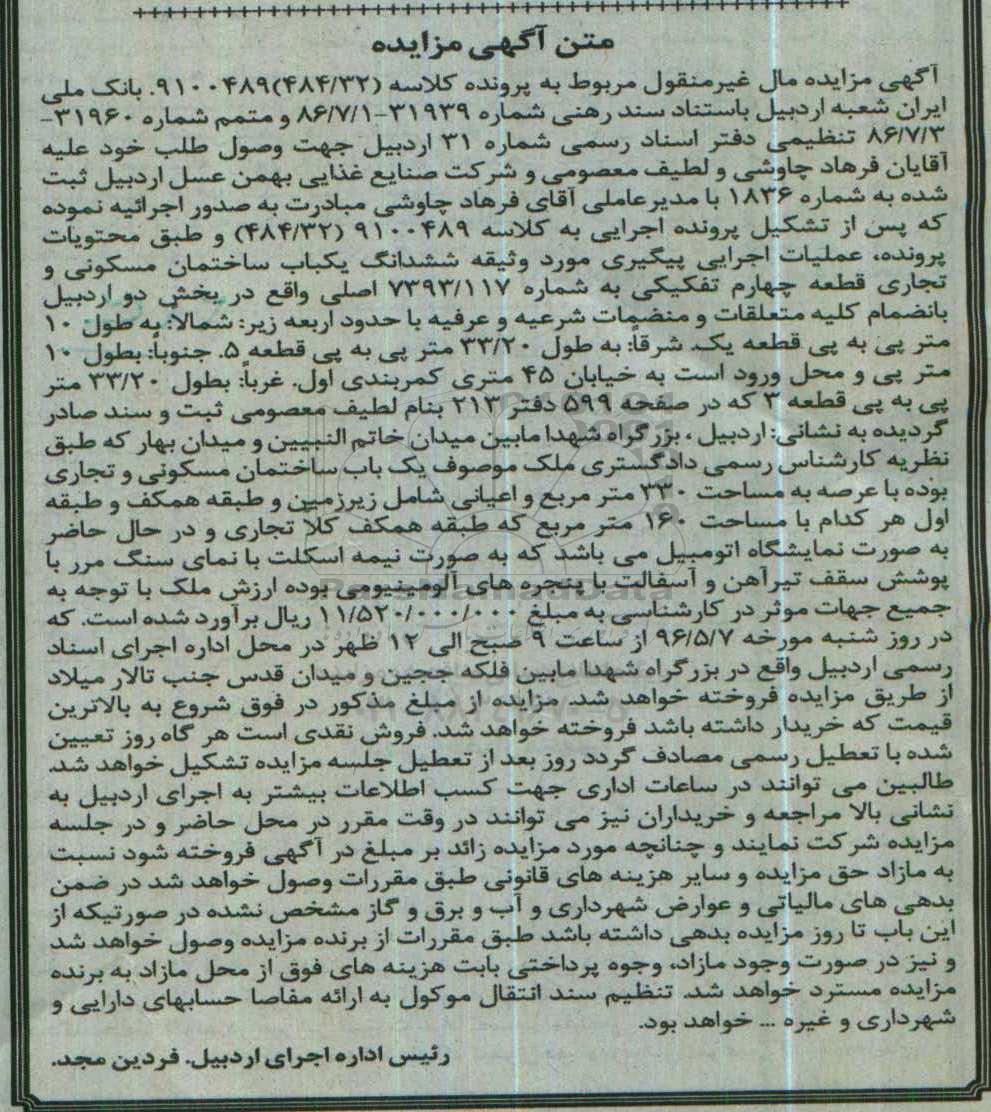 متن آگهی مزایده
آگهی مزایده مال غیرمنقول مربوط به پرونده کلاسه (۴۸۴/۳۲)۹۱۰۰۴۸۹. بانک ملی
ایران شعبه اردبیل باستناد سند رهنی شماره ۳۱۹۳۹-۸۶/۷/۱ و متمم شماره ۳۱۹۶۰-
۸۶/۷/۳ تنظیمی دفتر اسناد رسمی شماره ۳۱ اردبیل جهت وصول طلب خود علیه
آقایان فرهاد چاوشی و لطیف معصومی و شرکت صنایع غذایی بهمن عسل اردبیل ثبت
شده به شماره ۱۸۳۶ با مدیرعاملی آقای فرهاد چاوشی مبادرت به صدور اجرائیه نموده
که پس از تشکیل پرونده اجرایی به کلاسه ۹۱۰۰۴۸۹ (۴۸۴/۳۲) و طبق محتویات
پرونده، عملیات اجرایی پیگیری مورد وثیقه ششدانگ یکباب ساختمان مسکونی و
تجاری قطعه چهارم تفکیکی به شماره ۷۳۹۳/۱۱۷ اصلی واقع در بخش دو اردبیل
بانضمام کلیه متعلقات و منضمات شرعیه و عرفیه با حدود اربعه زیر: شمالا: به طول ۱۰
متر پی به پی قطعه یک. شرقاً: به طول ۳۳/۲۰ متر پی به پی قطعه ۵. جنوباً: بطول ۱۰
متر پی و محل ورود است به خیابان ۴۵ متری کمربندی اول. غرباً: بطول ۳۳/۲۰ متر
پی به پی قطعه ۳ که در صفحه ۵۹۹ دفتر ۲۱۳ بنام لطیف معصومی ثبت و سند صادر
گردیده به نشانی: اردبیل ، بزرگراه شهدا مابین میدان خاتم النبیین و میدان بهار که طبق
نظریه کارشناس رسمی دادگستری ملک موصوف یک باب ساختمان مسکونی و تجاری
بوده با عرصه به مساحت ۳۳۰ متر مربع و اعیانی شامل زیرزمین و طبقه همکف و طبقه
اول هر کدام با مساحت ۱۶۰ متر مربع که طبقه همکف کلا تجاری و در حال حاضر
به صورت نمایشگاه اتومبیل می باشد که به صورت نیمه اسکلت با نمای سنگ مرر با
پوشش سقف تیرآهن و آسفالت با پنجره های آلومینیومی بوده ارزش ملک با توجه به
جمیع جهات موثر در کارشناسی به مبلغ ۱۱/۵۲۰/۰۰۰/۰۰۰ ریال برآورد شده است. که
در روز شنبه مورخه ۹۶/۵/۷ از ساعت ۹ صبح الی ۱۲ ظهر در محل اداره اجرای اسناد
رسمی اردبیل واقع در بزرگراه شهدا مابین فلکه ججین و میدان قدس جنب تالار میلاد
از طریق مزایده فروخته خواهد شد. مزایده از مبلغ مذکور در فوق شروع به بالاترین
قیمت که خریدار داشته باشد فروخته خواهد شد. فروش نقدی است هر گاه روز تعیین
شده با تعطیل رسمی مصادف گردد روز بعد از تعطیل جلسه مزایده تشکیل خواهد شد.
طالبین می توانند در ساعات اداری جهت کسب اطلاعات بیشتر به اجرای اردبیل به
نشانی بالا مراجعه و خریداران نیز می توانند در وقت مقرر در محل حاضر و در جلسه
مزایده شرکت نمایند و چنانچه مورد مزایده زائد بر مبلغ در آگهی فروخته شود نسبت
به مازاد حق مزایده و سایر هزینه های قانونی طبق مقررات وصول خواهد شد در ضمن
بدهی های مالیاتی و عوارض شهرداری و آب و برق و گاز مشخص نشده در صورتیکه از
این باب تا روز مزایده بدهی داشته باشد طبق مقررات از برنده مزایده وصول خواهد شد
و نیز در صورت وجود مازاد، وجوه پرداختی بابت هزینه های فوق از محل مازاد به برنده
مزایده مسترد خواهد شد. تنظیم سند انتقال موکول به ارائه مفاصا حسابهای دارایی و
شهرداری و غیره ... خواهد بود.
رئیس اداره اجرای اردبیل. فردین مجد.